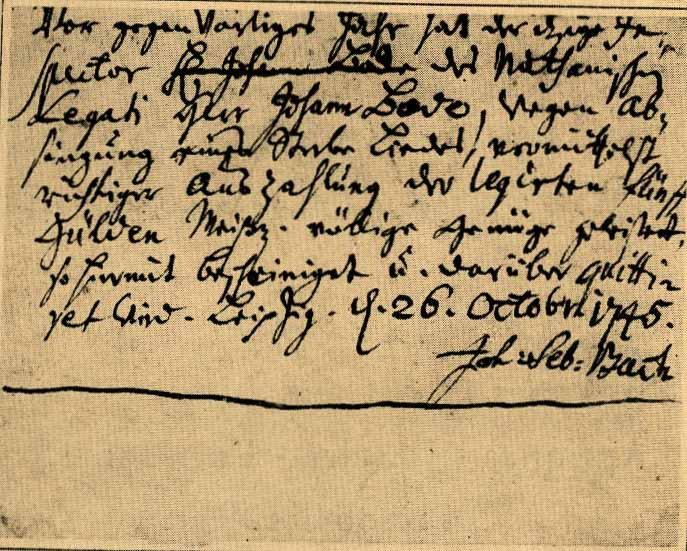 Vor gegenwärtiges Jahr hat der itzige In-
spector des Nathanischen
Legati Herr Johann Bodo, wegen Ab-
singung eines Sterbe Liedes, vermittelst
richtiger Auszahlung der legirten fünff
Gülden Meißn. völlige Genüge geleistet,
so hiermit bescheiniget u. darüber quitti-
ret wird. Leipzig. d. 26. Octobr. 1745.
Joh: Seb: Bach